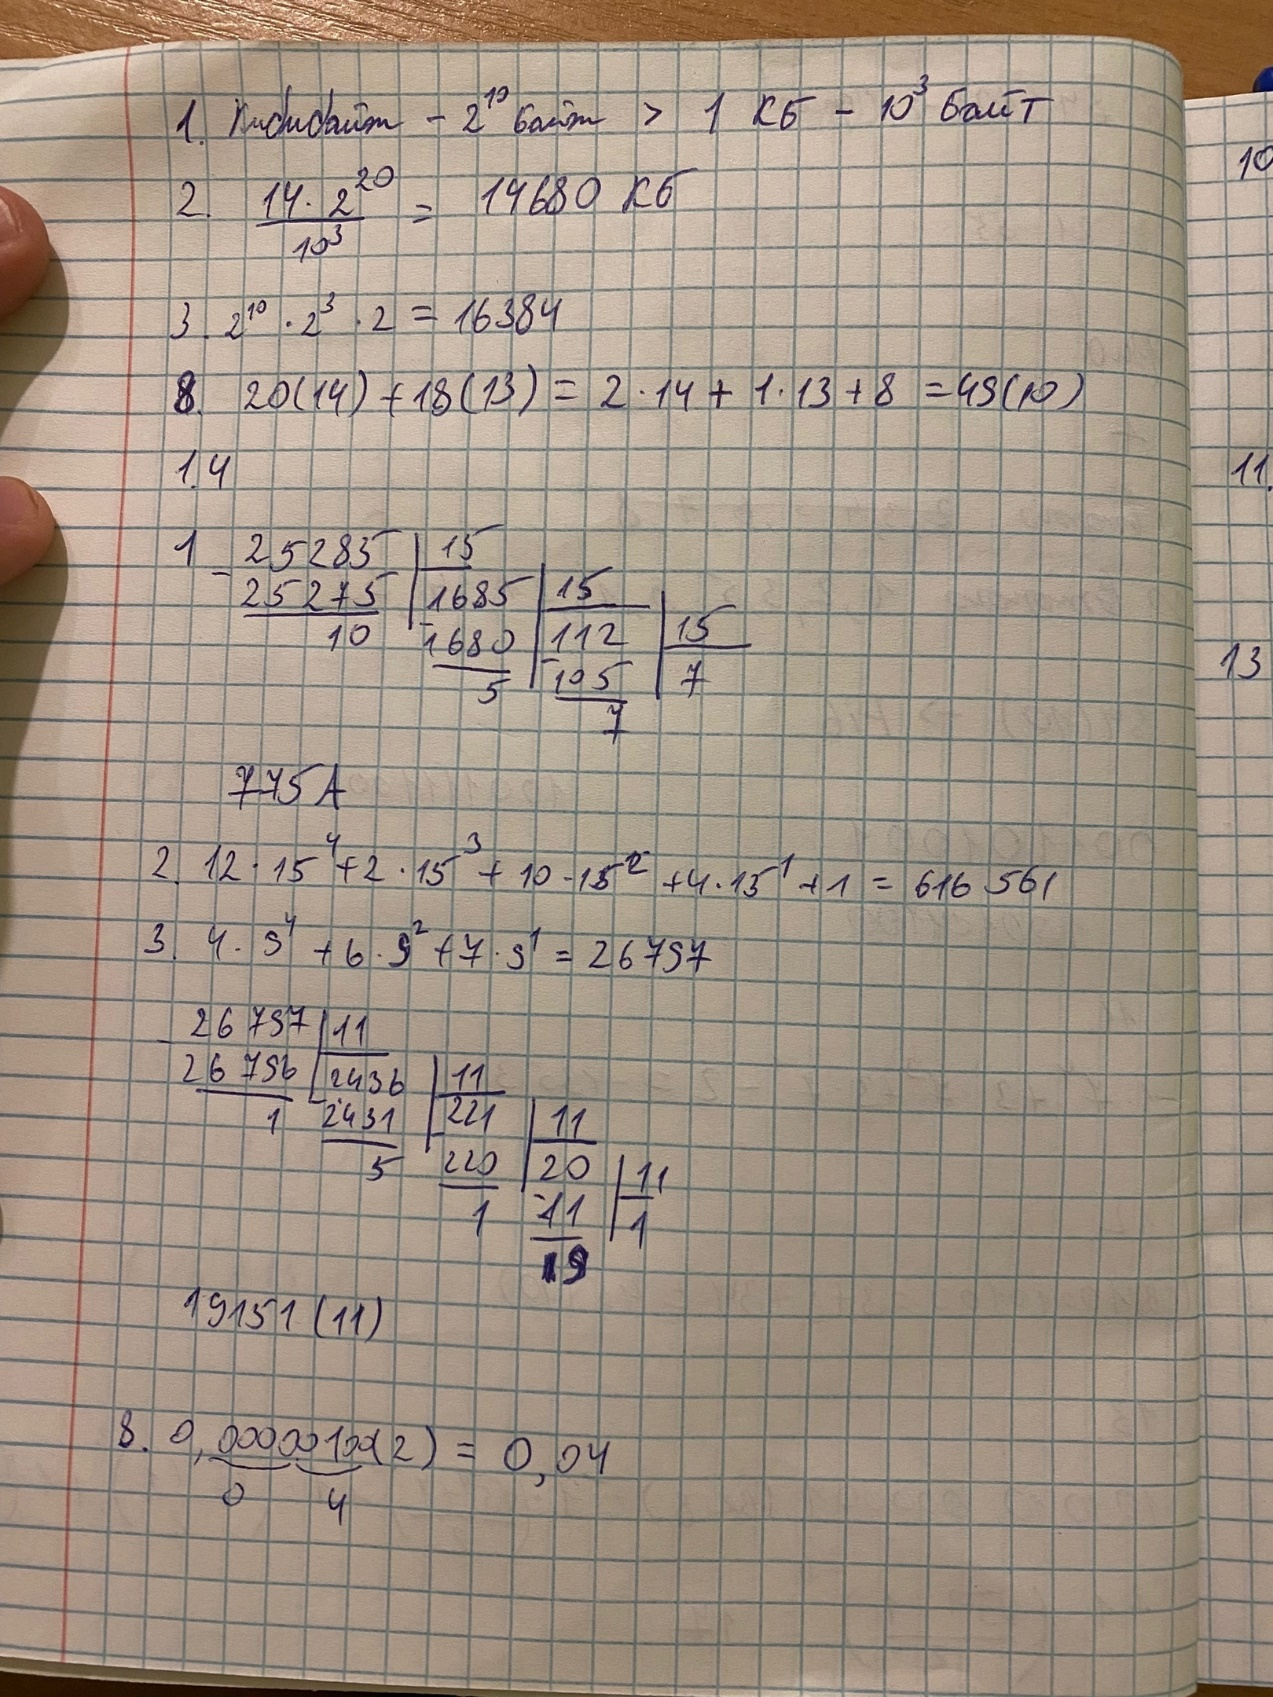 1. Кибибайт - 2^10 байт > 1 КБ - 10^3 Байт
2. 14 · 2^20 / 10^3 = 14680 КБ
3. 2^10 · 2^3 · 2 = 16384
8. 20(14) + 18(13) = 2 · 14 + 1 · 13 + 8 = 49(10)
1.4
1 25285 | 15
- 25275 | 1685 | 15
10 - 1680 | 112 | 15
5 - 105 | 7
7
775A
2. 12 · 15^4 + 2 · 15^3 + 10 · 15^2 + 4 · 15^1 + 1 = 616 561
3. 4 · 9^4 + 6 · 9^2 + 7 · 9^1 = 26797
- 26797 | 11
26796 | 2436 | 11
1 2431 | 221 | 11
5 220 | 20 | 11
1 - 11 | 1
9
19151 (11)
8. 0,00000100(2) = 0,04
0 4
10
11.
13